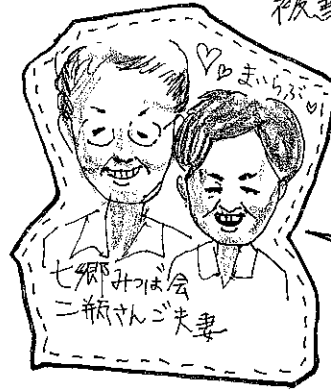 まいらぶ
七郷みつば会
二瓶さんご夫妻